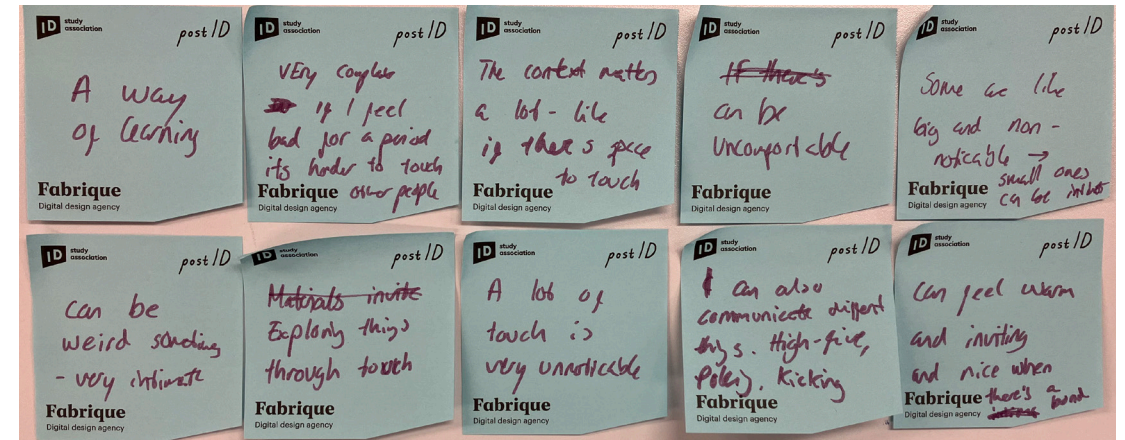 ID study association
post ID
A way
of learning
Fabrique
Digital design agency
ID study association
post ID
very complex
if I feel
bad for a period
its harder to touch
other people
Fabrique
Digital design agency
ID study association
post ID
The context matters
a lot - like
if there's space
to touch
Fabrique
Digital design agency
ID study association
post ID
If there's
can be
uncomfortable
Fabrique
Digital design agency
ID study association
post ID
Some are like
big and non -
noticable →
small ones
can be
Fabrique
Digital design agency
ID study association
post ID
can be
weird
- very intimate
Fabrique
Digital design agency
ID study association
post ID
Materials invite
Exploring things
through touch
Fabrique
Digital design agency
ID study association
post ID
A lot of
touch is
very unnoticable
Fabrique
Digital design agency
ID study association
post ID
can also
communicate different
things. High-five,
Poking. Kicking
Fabrique
Digital design agency
ID study association
post ID
can feel warm
and inviting
and nice when
there's a bond
Fabrique
Digital design agency